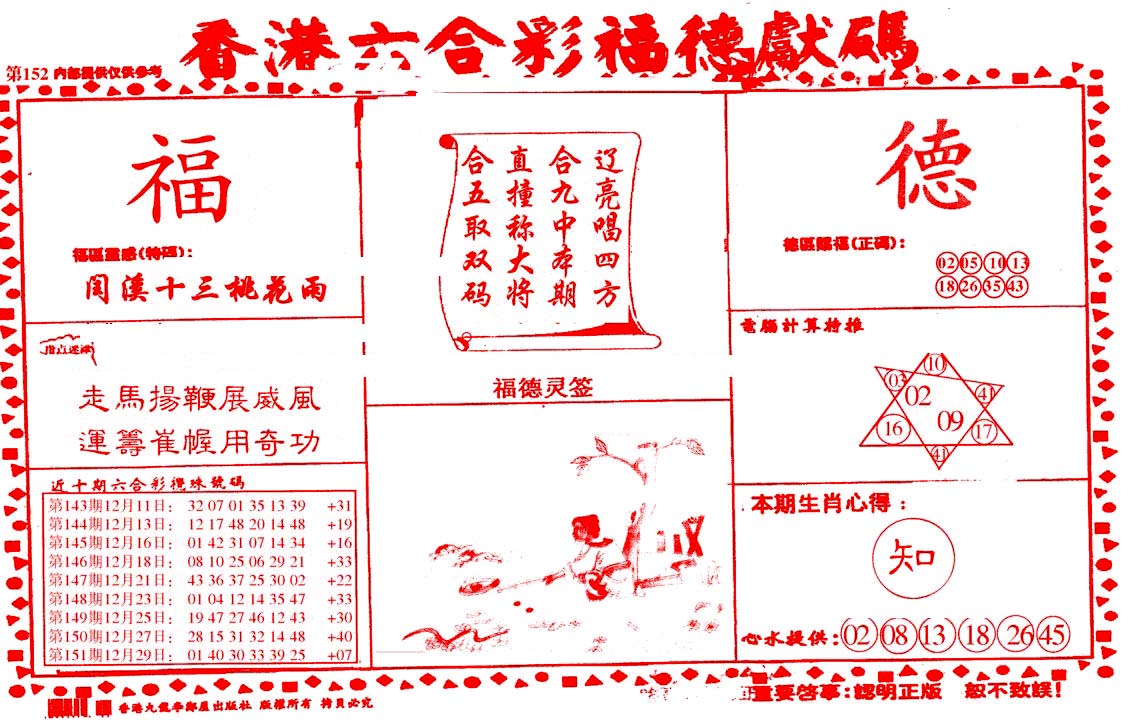 香港六合彩福德獻碼
第152 内部提供仅供参考
福
福區靈感(特碼):
閏溪十三桃花雨
指点迷津
走馬揚鞭展威風
運籌崔幄用奇功
近十期六合彩攪珠號碼
第143期12月11日: 32 07 01 35 13 39 +31
第144期12月13日: 12 17 48 20 14 48 +19
第145期12月16日: 01 42 31 07 14 34 +16
第146期12月18日: 08 10 25 06 29 21 +33
第147期12月21日: 43 36 37 25 30 02 +22
第148期12月23日: 01 04 12 14 35 47 +33
第149期12月25日: 19 47 27 46 12 43 +30
第150期12月27日: 28 15 31 32 14 48 +40
第151期12月29日: 01 40 30 33 39 25 +07
辽亮唱四方
合九中本期
直撞称大将
合五取双码
福德灵签
德
德區賜福(正碼):
02 05 10 13
18 26 35 43
電腦計算特推
10
03
02
41
09
16
17
41
本期生肖心得:
知
心水提供:02 08 13 18 26 45
香港九龍李鄭屋出版社 版權所有 拷貝必究
重要啓事:認明正版 恕不致誤!